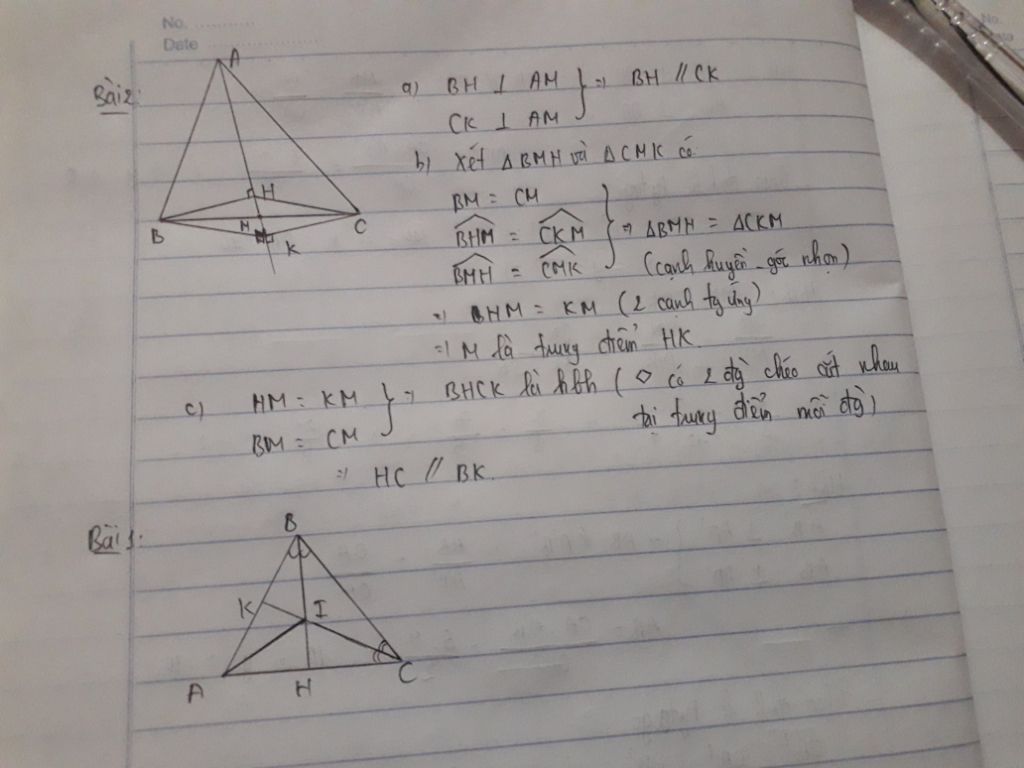 No. ............
Date ............
Bài 2:
A
H
M
B
C
K
a) BH ⊥ AM } => BH // CK
CK ⊥ AM
b) Xét ΔBMH và ΔCMK có
BM = CM
BHM = CKM } => ΔBMH = ΔCKM
BMH = CMK (cạnh huyền - góc nhọn)
=> HM = KM (2 cạnh tg ứng)
=> M là trung điểm HK.
c) HM = KM } => BHCK là hbh (◇ có 2 đg chéo cắt nhau
BM = CM tại trung điểm mỗi đg)
=> HC // BK.
Bài 1:
B
K
I
A
H
C
No.
Date